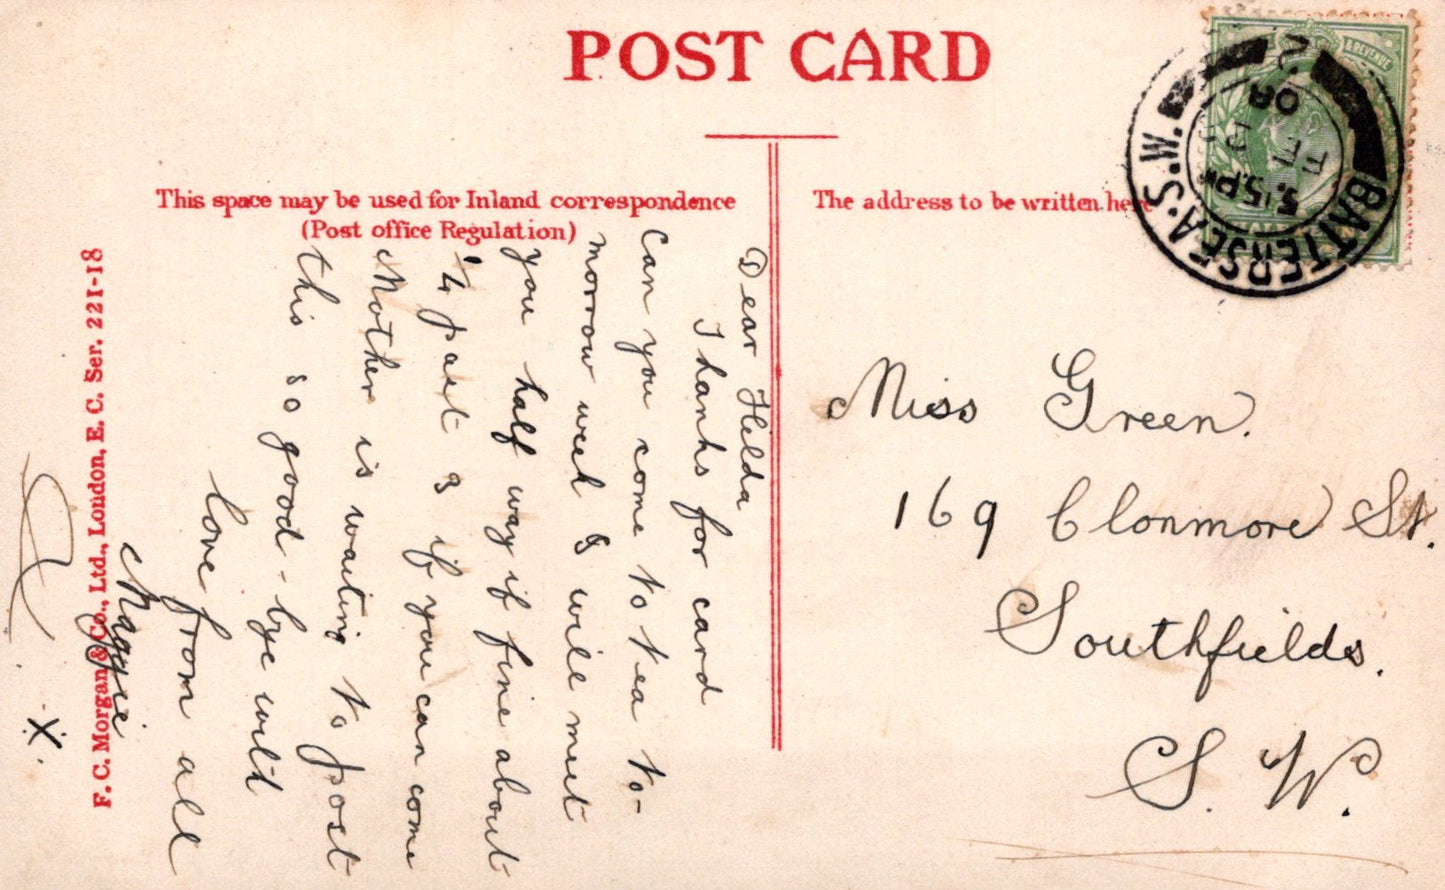 POST CARD
This space may be used for Inland correspondence
(Post office Regulation)
The address to be written here
F. C. Morgan & Co., Ltd., London, E. C. Ser. 221-18
BATTERSEA.S.W.
3.15PM
08
2
& REVENUE
Dear Hilda
Thanks for card
Can you come to tea to-
morrow week I will meet
you half way if fine about
1/4 past 3 if you can come
Mother is waiting to post
this so good-bye with
love from all
Maggie
X.
Miss Green.
169 Clonmore St.
Southfields.
S. W.